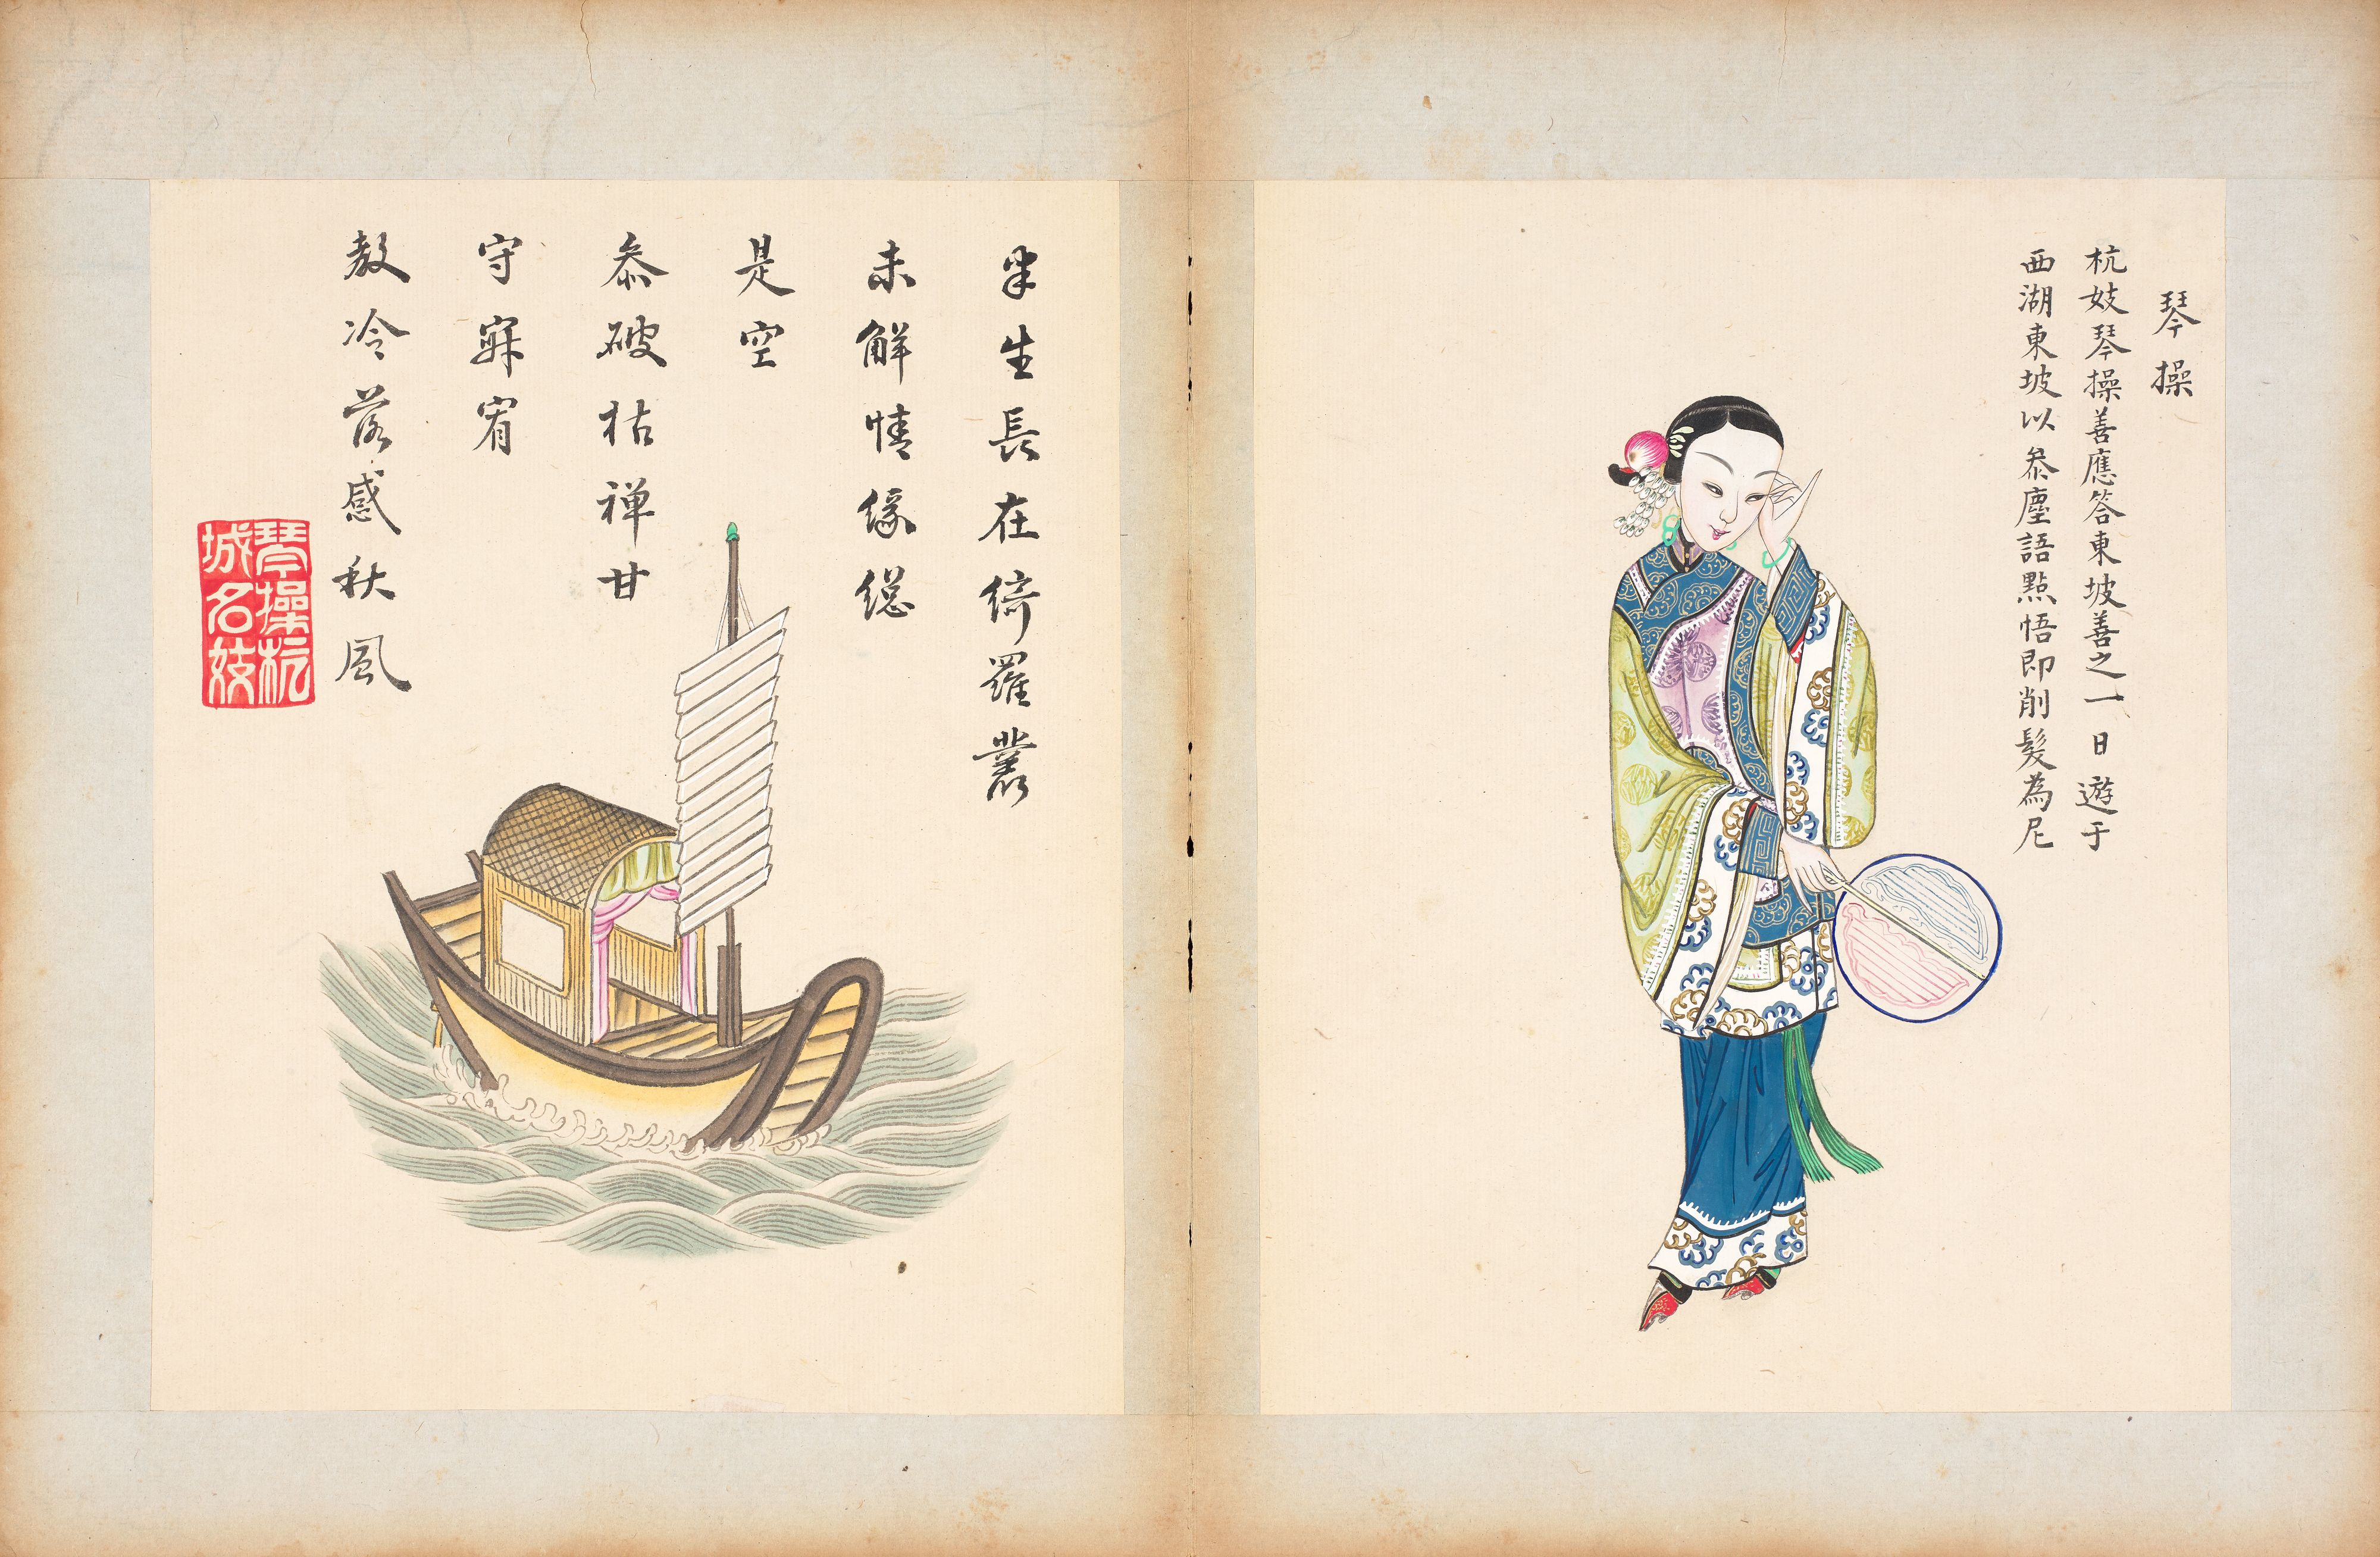 琴操
杭妓琴操善應答東坡善之一日遊于
西湖東坡以叅塵語點悟即削髮為尼
半生長在綺羅叢
未解情緣總
是空
叅破枯禅甘
守寂
教冷落感秋風
琴操杭
城名妓